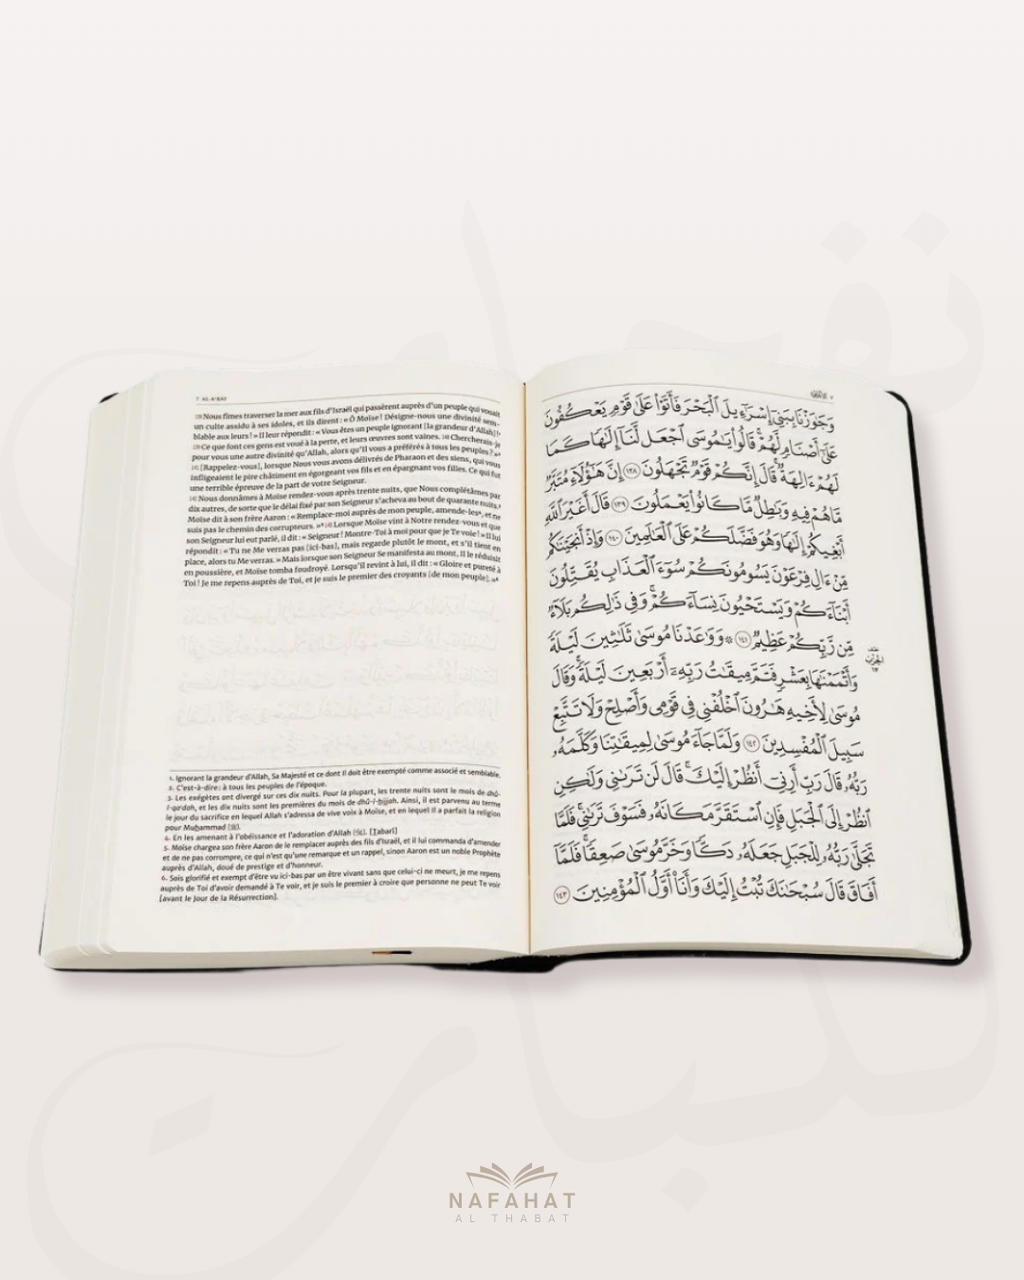 7 AL-A'RAF
Nous fîmes traverser la mer aux fils d'Israël qui passèrent auprès d'un peuple qui vouait
un culte assidu à ses idoles, et ils dirent : « Ô Moïse! Désigne-nous une divinité sem-
blable aux leurs ! » Il leur répondit : « Vous êtes un peuple ignorant [la grandeur d'Allah]!¹
Ce que font ces gens est voué à la perte, et leurs œuvres sont vaines. Chercherais-je
pour vous une autre divinité qu'Allah, alors qu'Il vous a préférés à tous les peuples ? »²
[Rappelez-vous], lorsque Nous vous avons délivrés de Pharaon et des siens, qui vous
infligeaient le pire châtiment en égorgeant vos fils et en épargnant vos filles. Ce qui fut
une terrible épreuve de la part de votre Seigneur.
Nous donnâmes à Moïse rendez-vous après trente nuits, que Nous complétâmes par
dix autres, de sorte que le délai fixé par son Seigneur s'acheva au bout de quarante nuits.³
Moïse dit à son frère Aaron : « Remplace-moi auprès de mon peuple, amende-les⁴, et ne
suis pas le chemin des corrupteurs. »⁵ Lorsque Moïse vint à Notre rendez-vous et que
son Seigneur lui eut parlé, il dit : « Seigneur ! Montre-Toi à moi pour que je Te voie ! » Il lui
répondit : « Tu ne Me verras pas [ici-bas], mais regarde plutôt le mont, et s'il tient en
place, alors tu Me verras. » Mais lorsque son Seigneur Se manifesta au mont, Il le réduisit
en poussière, et Moïse tomba foudroyé. Lorsqu'il revint à lui, il dit : « Gloire et pureté à
Toi ! Je me repens auprès de Toi, et je suis le premier des croyants [de mon peuple]. »⁶
1. Ignorant la grandeur d'Allah, Sa Majesté et ce dont Il doit être exempté comme associé et semblable.
2. C'est-à-dire : à tous les peuples de l'époque.
3. Les exégètes ont divergé sur ces dix nuits. Pour la plupart, les trente nuits sont le mois de dhû-
l-qa'dah, et les dix nuits sont les premières du mois de dhû-l-ḥijjah. Ainsi, il est parvenu au terme
le jour du sacrifice en lequel Allah s'adressa de vive voix à Moïse, et en lequel Il a parfait la religion
pour Muḥammad (ﷺ).
4. En les amenant à l'obéissance et l'adoration d'Allah. [Ṭabarî]
5. Moïse chargea son frère Aaron de le remplacer auprès des fils d'Israël, et il lui commanda d'amender
et de ne pas corrompre, ce qui n'est qu'une remarque et un rappel, sinon Aaron est un noble Prophète
auprès d'Allah, doué de prestige et d'honneur.
6. Sois glorifié et exempt d'être vu ici-bas par un être vivant sans que celui-ci ne meurt, je me repens
auprès de Toi d'avoir demandé à Te voir, et je suis le premier à croire que personne ne peut Te voir
[avant le Jour de la Résurrection].
٧ الأعراف
وَجَٰوَزْنَا بِبَنِىٓ إِسْرَٰٓءِيلَ ٱلْبَحْرَ فَأَتَوْا۟ عَلَىٰ قَوْمٍ يَعْكُفُونَ
عَلَىٰٓ أَصْنَامٍ لَّهُمْ ۚ قَالُوا۟ يَٰمُوسَى ٱجْعَل لَّنَآ إِلَٰهًا كَمَا
لَهُمْ ءَالِهَةٌ ۚ قَالَ إِنَّكُمْ قَوْمٌ تَجْهَلُونَ ١٣٨ إِنَّ هَٰٓؤُلَآءِ مُتَبَّرٌ
مَّا هُمْ فِيهِ وَبَٰطِلٌ مَّا كَانُوا۟ يَعْمَلُونَ ١٣٩ قَالَ أَغَيْرَ ٱللَّهِ
أَبْغِيكُمْ إِلَٰهًا وَهُوَ فَضَّلَكُمْ عَلَى ٱلْعَٰلَمِينَ ١٤٠ وَإِذْ أَنجَيْنَٰكُم
مِّنْ ءَالِ فِرْعَوْنَ يَسُومُونَكُمْ سُوٓءَ ٱلْعَذَابِ يُقَتِّلُونَ
أَبْنَآءَكُمْ وَيَسْتَحْيُونَ نِسَآءَكُمْ ۚ وَفِى ذَٰلِكُم بَلَآءٌ
مِّن رَّبِّكُمْ عَظِيمٌ ١٤١ ۞ وَوَٰعَدْنَا مُوسَىٰ ثَلَٰثِينَ لَيْلَةً
وَأَتْمَمْنَٰهَا بِعَشْرٍ فَتَمَّ مِيقَٰتُ رَبِّهِۦٓ أَرْبَعِينَ لَيْلَةً ۚ وَقَالَ
مُوسَىٰ لِأَخِيهِ هَٰرُونَ ٱخْلُفْنِى فِى قَوْمِى وَأَصْلِحْ وَلَا تَتَّبِعْ
سَبِيلَ ٱلْمُفْسِدِينَ ١٤٢ وَلَمَّا جَآءَ مُوسَىٰ لِمِيقَٰتِنَا وَكَلَّمَهُۥ
رَبُّهُۥ قَالَ رَبِّ أَرِنِىٓ أَنظُرْ إِلَيْكَ ۚ قَالَ لَن تَرَىٰنِى وَلَٰكِنِ
ٱنظُرْ إِلَى ٱلْجَبَلِ فَإِنِ ٱسْتَقَرَّ مَكَانَهُۥ فَسَوْفَ تَرَىٰنِى ۚ فَلَمَّا
تَجَلَّىٰ رَبُّهُۥ لِلْجَبَلِ جَعَلَهُۥ دَكًّا وَخَرَّ مُوسَىٰ صَعِقًا ۚ فَلَمَّآ
أَفَاقَ قَالَ سُبْحَٰنَكَ تُبْتُ إِلَيْكَ وَأَنَا۠ أَوَّلُ ٱلْمُؤْمِنِينَ ١٤٣
NAFAHAT
AL THABAT